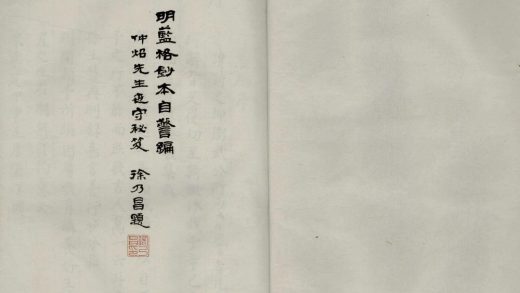 明藍格鈔本自警編
仲炤先生世守秘笈 徐乃昌題